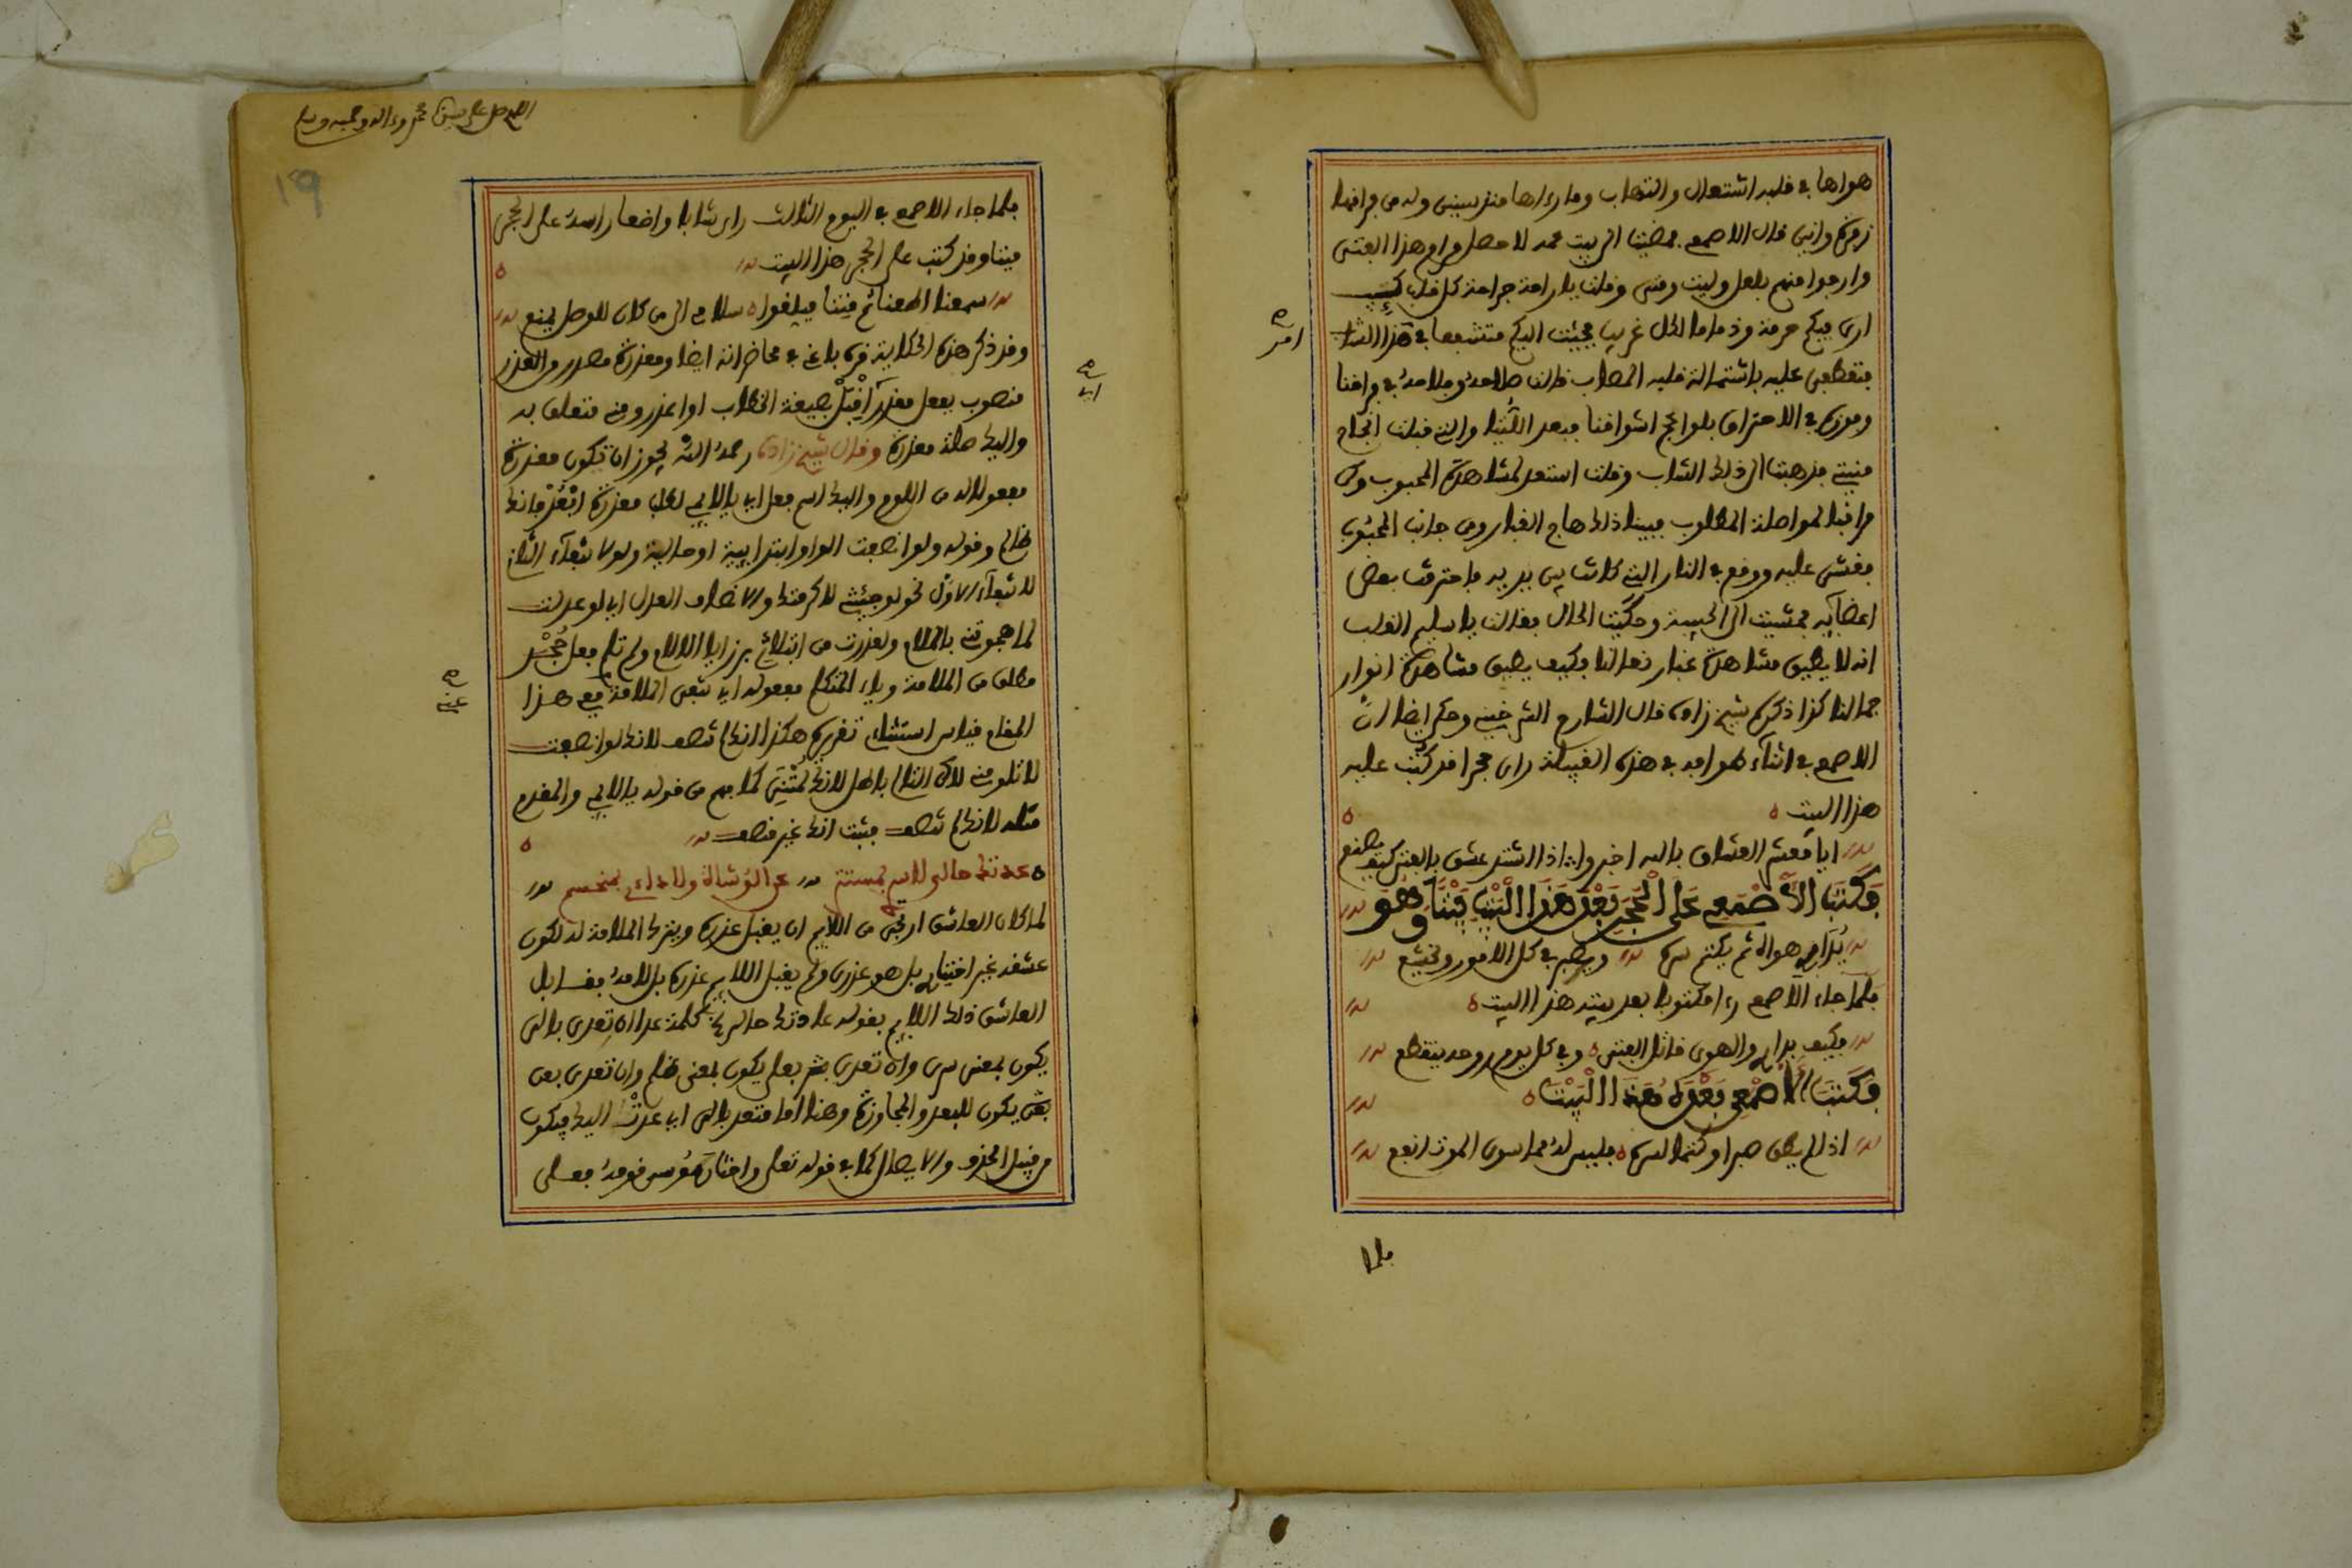 هواها في قلبه اشتعال والتهاب وما رءاها منذ سنين وله من فراقها
زفرة وانين قال الاصمعي فمضيت الى بيت عمه لاصل مرام هذا الفتى
وارجوا منهم بلعل وليت ومتى وقلت يا راحة جراحة كل قلب كئيب
ارى فيكم حرمة وذماما لكل غريب فجئت اليكم متشفعا في هذا الشاب
امر
فتعطفي عليه باشتمالة قلبه المصاب فقالت صلاحه وفلاحه في فراقنا
وفوزه في الاحتراق بلواعج اشواقنا فبعد اللتيا والتي قبلت انجاح
منيتي فذهبت الى ذلك الشاب وقلت استعد لمشاهدة المحبوب وكن
مراقبا لمواصلة المطلوب فبينا ذلك هاج الغبار ومن جانب المحبوب
فغشي عليه ووقع في النار التي كانت بين يديه فاحترقت بعض
اعضآيه فمشيت الى الحبيبة وحكيت الحال فقالت يا سليم القلب
انه لا يطيق مشاهدة غبار نعالنا فكيف يطيق مشاهدة انوار
جمالنا كذا ذكره شيخ زاده قال الشارح الشرخيتي وحكي ايضا ان
الاصمعي في اثنآء طوافه في هذه القبيلة راى حجرا قد كتب عليه
هذا البيت
ايا معشر العشاق بالله اخبروا اذا اشتد عشق بالفتى كيف يصنع
فكتب الاصمعي على الحجر بعد هذا البيت بيتا وهو
يدارى هواه ثم يكتم سره ويصبر في كل الامور ويخشع
فلما جاء الاصمعي رءا مكتوبا بعد بيته هذا البيت
فكيف يدارى والهوى قاتل الفتى وفي كل يوم روحه يتقطع
فكتب الاصمعي بعده هذا البيت
اذا لم يطق صبرا وكتما لسره فليس له مما سوى الموت انفع
فلما
اللهم صل على سيدنا محمد وءاله وصحبه وسلم
19
فلما جاء الاصمعي في اليوم الثالث راى شابا واضعا راسه على الحجر
ميتا وقد كتب على الحجر هذا البيت
سمعنا اطعنا ثم متنا فبلغوا سلامي الى من كان للوصل يمنع
وقد ذكر هذه الحكاية قره باغي في محاضراته ايضا ومعذرة مصدر من العذر
منصوب بفعل مقدر اي اقبل بصيغة الخطاب او اعذر ومني متعلق به
واليك صلة معذرة وقال شيخ زاده رحمه الله يجوز ان تكون معذرة
مفعولا له من اللوم واليك اسم فعل اي يا لايمي لاجل معذرة ابعد فانك
ظالم وقوله ولو انصفت الواو ابتدايية او حالية ولو لانتفآء الثاني
لانتفآء الاول نحو لو جئتني لاكرمتك والانصاف العدل اي لو عدلت
لما هجوتني بالملام ولعذرت من ابتلاء برزايا الالام ولم تلم فعل جحد
مطلق من الملامة وياء المتكلم مفعوله اي تنفى الملامة ففي هذا
المقام قياس استثنائي تقريره هكذا انك لم تنصف لانك لو انصفت
لا تلومني لاكن التالي باطل لانك لمتني كما يفهم من قوله يا لايمي والمقدم
مثله لانك لم تنصف فثبت انك غير منصف
عدتك حالي لا سري بمستتر عن الوشاة ولا داءي بمنحسم
لما كان العاشق ارتجى من اللايم ان يقبل عذره ويترك الملامة له لكون
عشقه غير اختيار بل هو عذرى ولم يقبل اللايم عذره بل لامه بقسا بل
العاشق ذلك اللايم بقوله عدتك حالي كلمة عدا ان تعدى بالى
يكون بمعنى سرى وان تعدى بعلى يكون بمعنى ظلم وان تعدى بعن
يكون للبعد والمجاوزة وهنا اما متعد بالى اي عدت اليك فيكون
من قبيل الحذف والايصال كما في قوله تعلى واختار موسى قومه فعلى